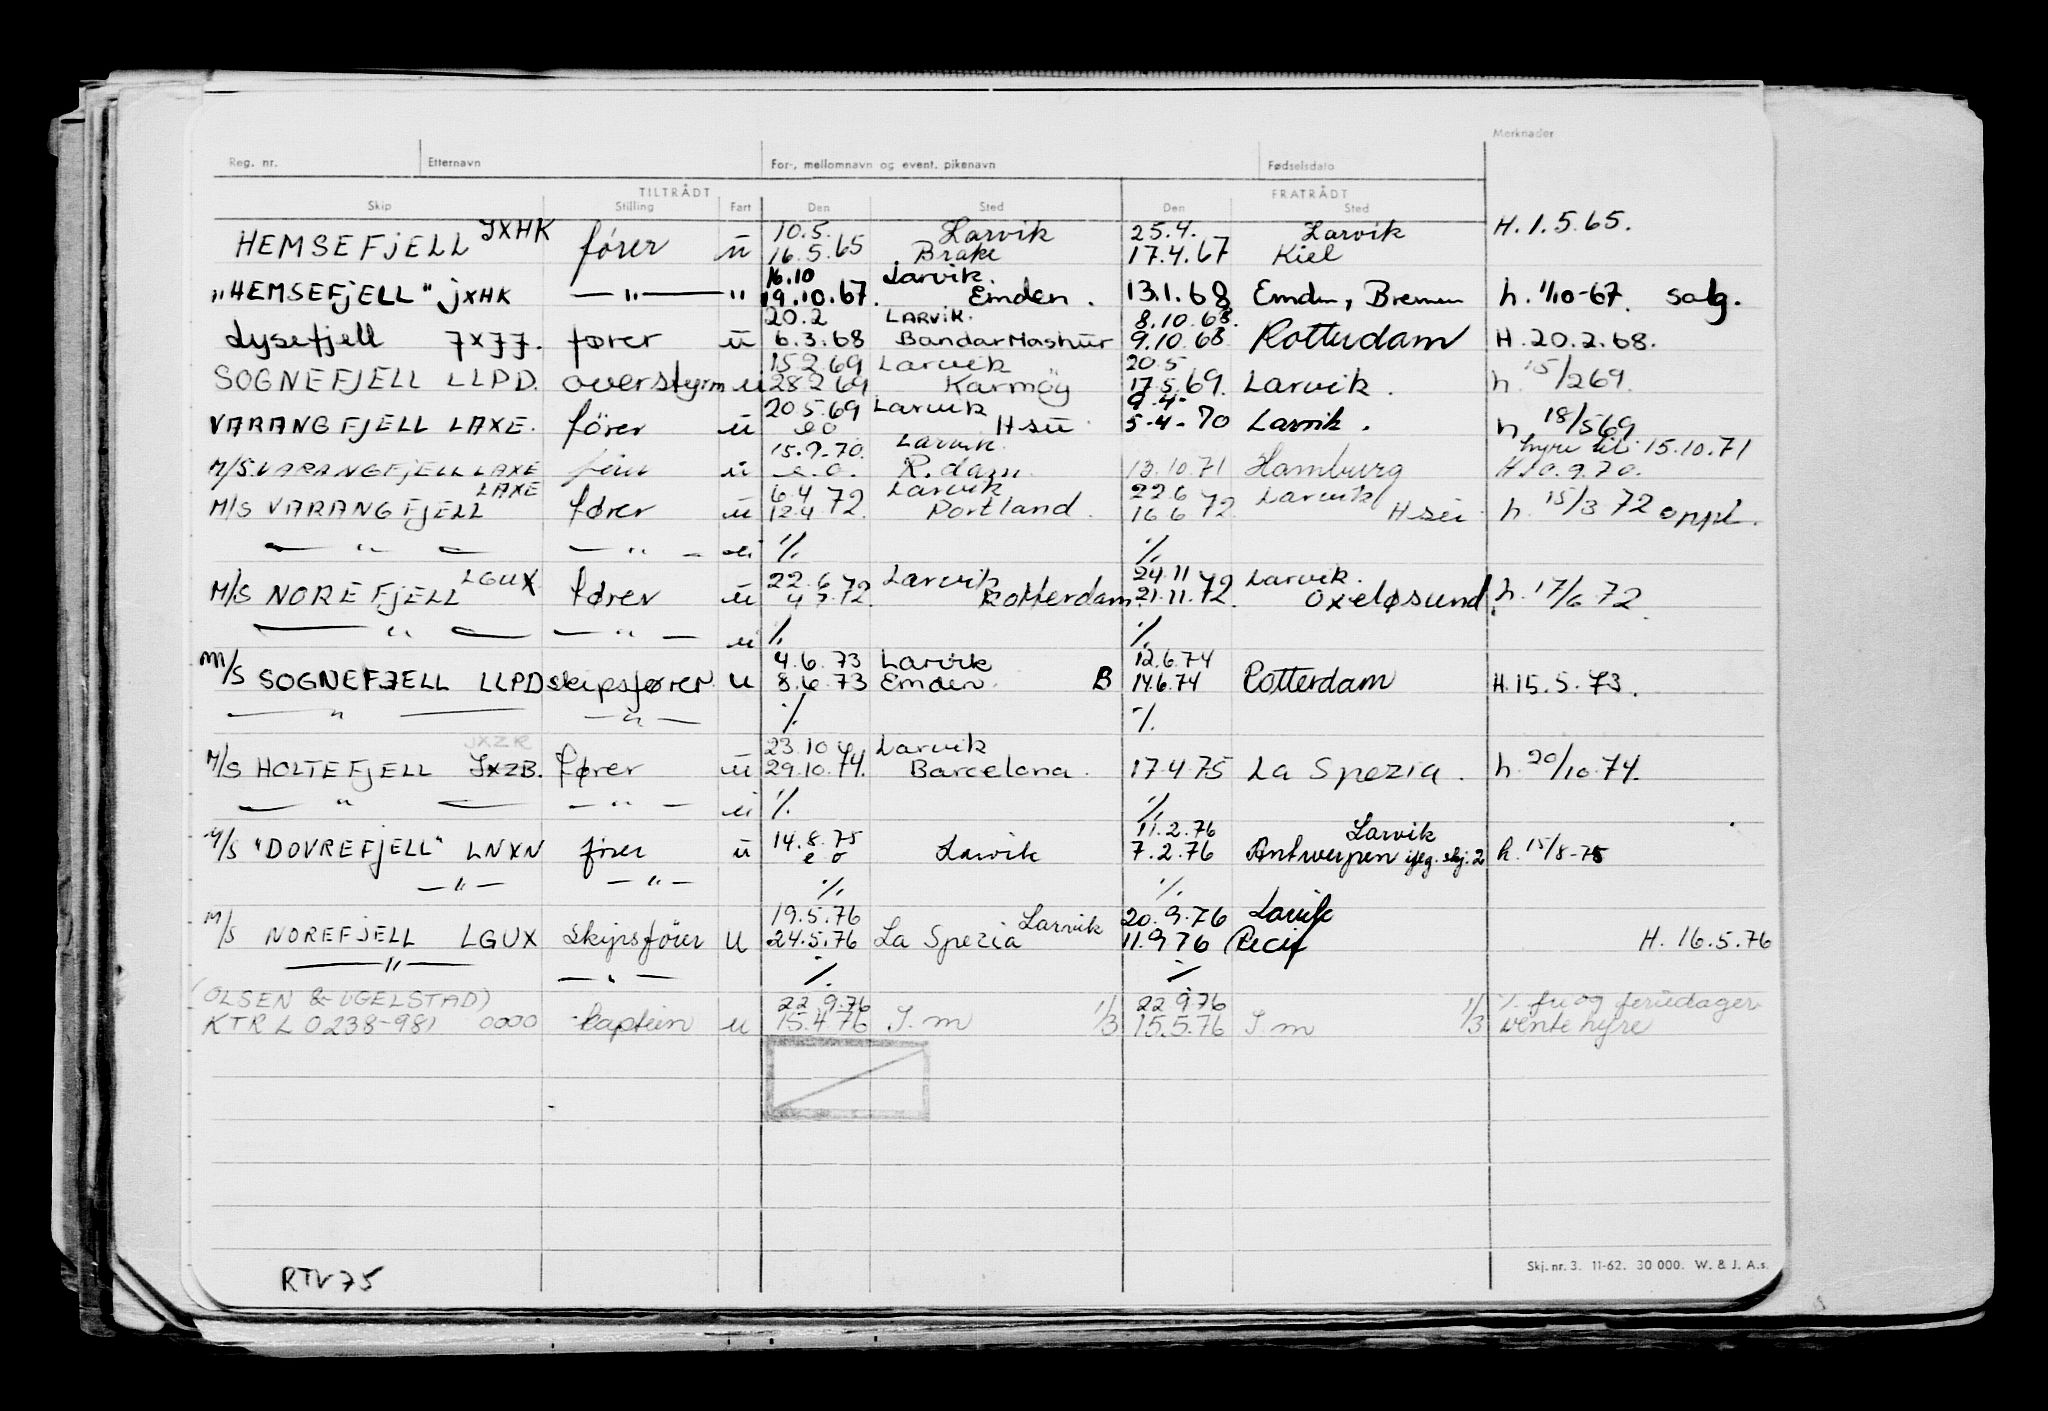 Merknader
Reg. nr. Etternavn For-, mellomnavn og event. pikenavn Fødselsdato
TILTRÅDT FRATRÅDT
Skip Stilling Fart Den Sted Den Sted
JXHK 10.5. Larvik 25.4. Larvik H. 1.5.65.
HEMSEFJELL fører u 16.5.65 Brake 17.4.67 Kiel
16.10 Larvik.
"HEMSEFJELL" JXHK — " — " 19.10.67. Emden. 13.1.68 Emden, Bremen h. 1/10-67. salg.
20.2 LARVIK. 8.10.68.
Lysefjell JXJJ. fører u 6.3.68 Bandar Mashur 9.10.68 Rotterdam H. 20.2.68.
15.2.69 Larvik 20.5
SOGNEFJELL LLPD. overstyrm u 28.2.69 Karmøy 17.5.69. Larvik. h. 15/2 69.
20.5.69 Larvik 9.4.
VARANGFJELL LAXE. fører u eo Hsu 5-4-70 Larvik. h 18/5 69
15.9.70. Larvik. hyre til 15.10.71
M/S. VARANGFJELL LAXE fører u e.o. R.dam. 13.10.71 Hamburg H10.9.70.
LAXE 6.4 Larvik 22.6 Larvik
M/S VARANGFJELL fører u 12.4 72. Portland. 16.6 72. Hsu h. 15/3 72 oppl.
— " — — " — u %. %.
LGUX 22.6 Larvik 24.11 Larvik.
M/S NOREFJELL fører u 4.7.72. Rotterdam. 21.11.72. Oxeløsund. h. 17/6 72.
— " — — " — u %. %.
4.6.73 Larvik 12.6.74
M/S SOGNEFJELL LLPD skipsfører u 8.6.73 Emden. B 14.6.74 Rotterdam H. 15.5.73.
— " — — " — %. %.
JXZR 23.10 Larvik
M/S HOLTEFJELL JXZB. fører u 29.10.74. Barcelona. 17.4.75 La Spezia. h. 20/10.74.
— " — — " — u %. %.
14.8.75 11.2.76 Larvik
M/S "DOVREFJELL" LNXN fører u e o Larvik 7.2.76 Antwerpen iføg. skj. 2 h. 15/8-75
— " — — " — %. %.
19.5.76 Larvik 20.9.76 Larvik
M/S NOREFJELL LGUX Skipsfører u 24.5.76 La Spezia 11.9.76 Recif H. 16.5.76
— " — — " — %. %.
(OLSEN & UGELSTAD) 22.9.76 1/3 22.9.76 1/3 %. fri og feriedager
KTR L 0238-981 0000 kaptein u 15.4.76 I. m 15.5.76 I. m vente hyre
RTV 75
Skj. nr. 3. 11-62. 30 000. W. & J. A.s.